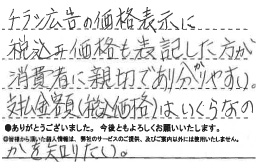 チラシ広告の価格表示に
税込み価格も表記した方が
消費者に親切であり分かりやすい。
支払金額(税込価格)はいくらなの
●ありがとうございました。今後ともよろしくお願いいたします。
◎皆様から頂いた個人情報は、弊社のサービスのご提供、及びご案内以外には使用いたしません。
かを知りたい。